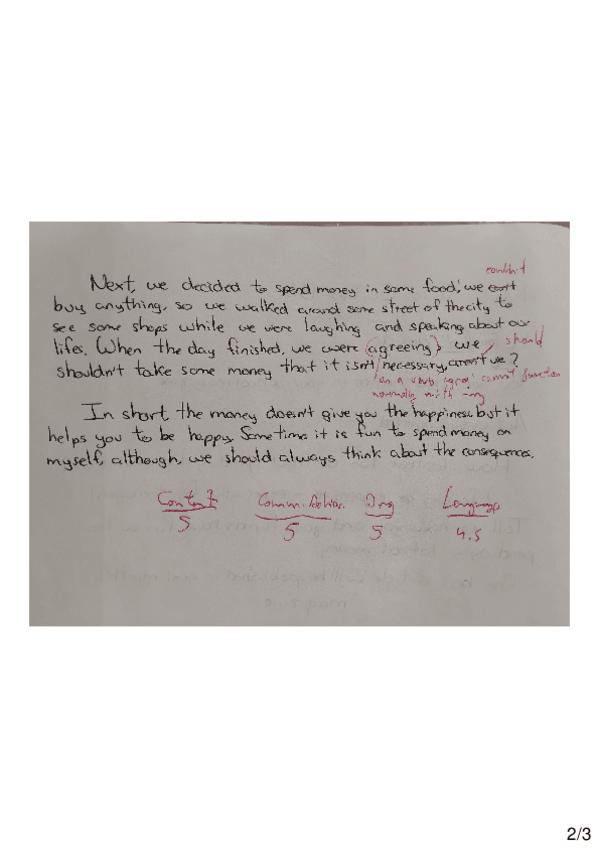 couldn't
Next, we decided to spend money in some food, we can't
buy anything, so we walked around some street of the city to
see some shops while we were laughing and speaking about our
lifes. When the day finished, we were (agreeing) we should
shouldn't take some money that it isn't necessary, aren't we?
as a verb, 'agree' cannot function
normally with -ing
In short, the money doesn't give you the happiness but it
helps you to be happy. Sometime it is fun to spend money on
myself, although, we should always think about the consequences.
Content Comm. Achiev. Org Language
5 5 5 4.5
2/3